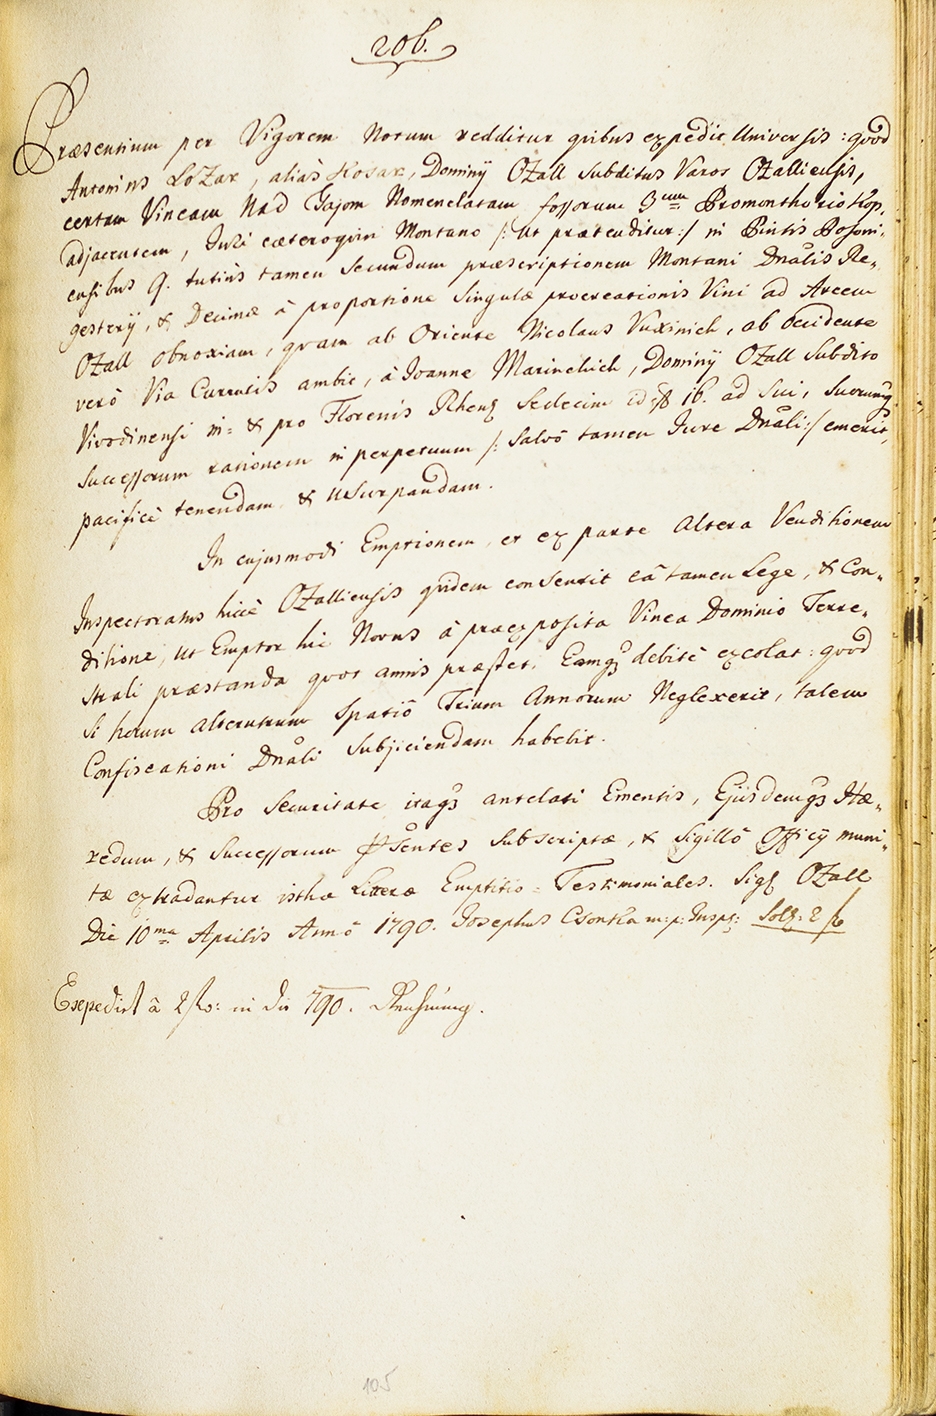 206.
Præsentium per Vigorem Notum redditur quibus expedit Universis: quod
Antonius Lozar, aliàs Kosar, Dominÿ Ozall Subditus Varos Ozalliensis,
certam Vineam Nad Gajom Nomenclatam fossorum 3um Promonthorio Kop.
adjacentem, Juri cæteroquin Montano /: ut prætenditur :/ in Pintis Posoni-
ensibus 9. tutiùs tamen secundum præscriptionem Montani Dnalis Re-
gesterÿ, & Decimæ à proportione singulæ procreationis Vini ad Arcem
Ozall obnoxiam, quam ab Oriente Nicolaus Vuxinich, ab Occidente
verò Via Currulis ambit, à Joanne Marinchich, Dominÿ Ozall Subdito
Vivodinensi in- & pro Florenis Rhen. Sedecim id: f 16. ad Sui, Suorumq
Successorum rationem in perpetuum /: Salvò tamen Jure Dnali :/ emerit,
pacificè tenendam & usurpandam.
In cujusmodi Emptionem, et ex parte altera Venditionem
Inspectoratus hicce Ozalliensis quidem consentit eâ tamen Lege, & Con-
ditione, ut Emptor hic Novus à præexposita Vinea Dominio Terre-
strali præstanda quot annis præstet, Eamq debitè excolat: quod
si horum alterutrum Spatiô Trium Annorum Neglexerit, talem
Confiscationi Dnali Subjiciendam habebit.
Pro Securitate itaq antelati Ementis, Ejusdemq Hæ-
redum, & Successorum Psentes Subscriptæ, & Sigillô Officÿ muni-
tæ extradantur isthæ Literæ Emptitio-Testimoniales. Sig. Ozall
Die 10ma Aprilis Annô 1790. Josephus Csontka m: p: Insp: Sol: 2 f
Exepedirt à 2 f in die 790. Rechnung.
105